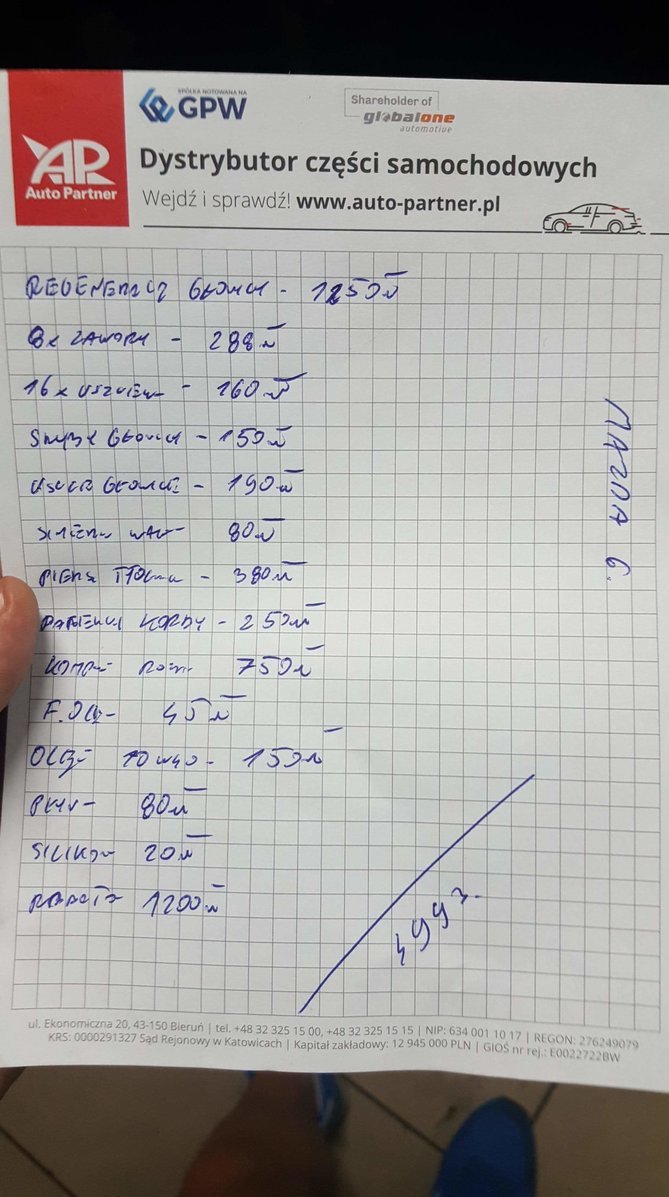 AP
Auto Partner
SPÓŁKA NOTOWANA NA
GPW
Shareholder of
globalone
automotive
Dystrybutor części samochodowych
Wejdź i sprawdź! www.auto-partner.pl
REGENERACJ GŁOWICY - 1250zł
8x ZAWORY - 288zł
16x USZCZEL - 160zł
ŚRUBY GŁOWICY - 150zł
USZCZ GŁOWICĘ - 190zł
80zł
PIERŚ TŁOKA - 380zł
PANEWKI KORBY - 250zł
KOMPL ROZR 750zł
F.OLEJ - 45zł
OLEJ 10W40 - 150zł
PŁYN - 80zł
SILIKON 20zł
ROBOTA 1200zł
4993.-
MAZDA 6.
ul. Ekonomiczna 20, 43-150 Bieruń | tel. +48 32 325 15 00, +48 32 325 15 15 | NIP: 634 001 10 17 | REGON: 276249079
KRS: 0000291327 Sąd Rejonowy w Katowicach | Kapitał zakładowy: 12 945 000 PLN | GIOŚ nr rej.: E0022722BW